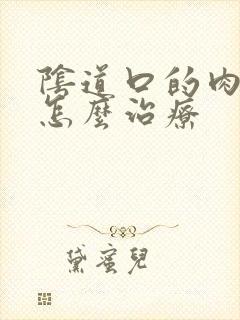 陰道口的肉
怎麼治療
黛蜜兒